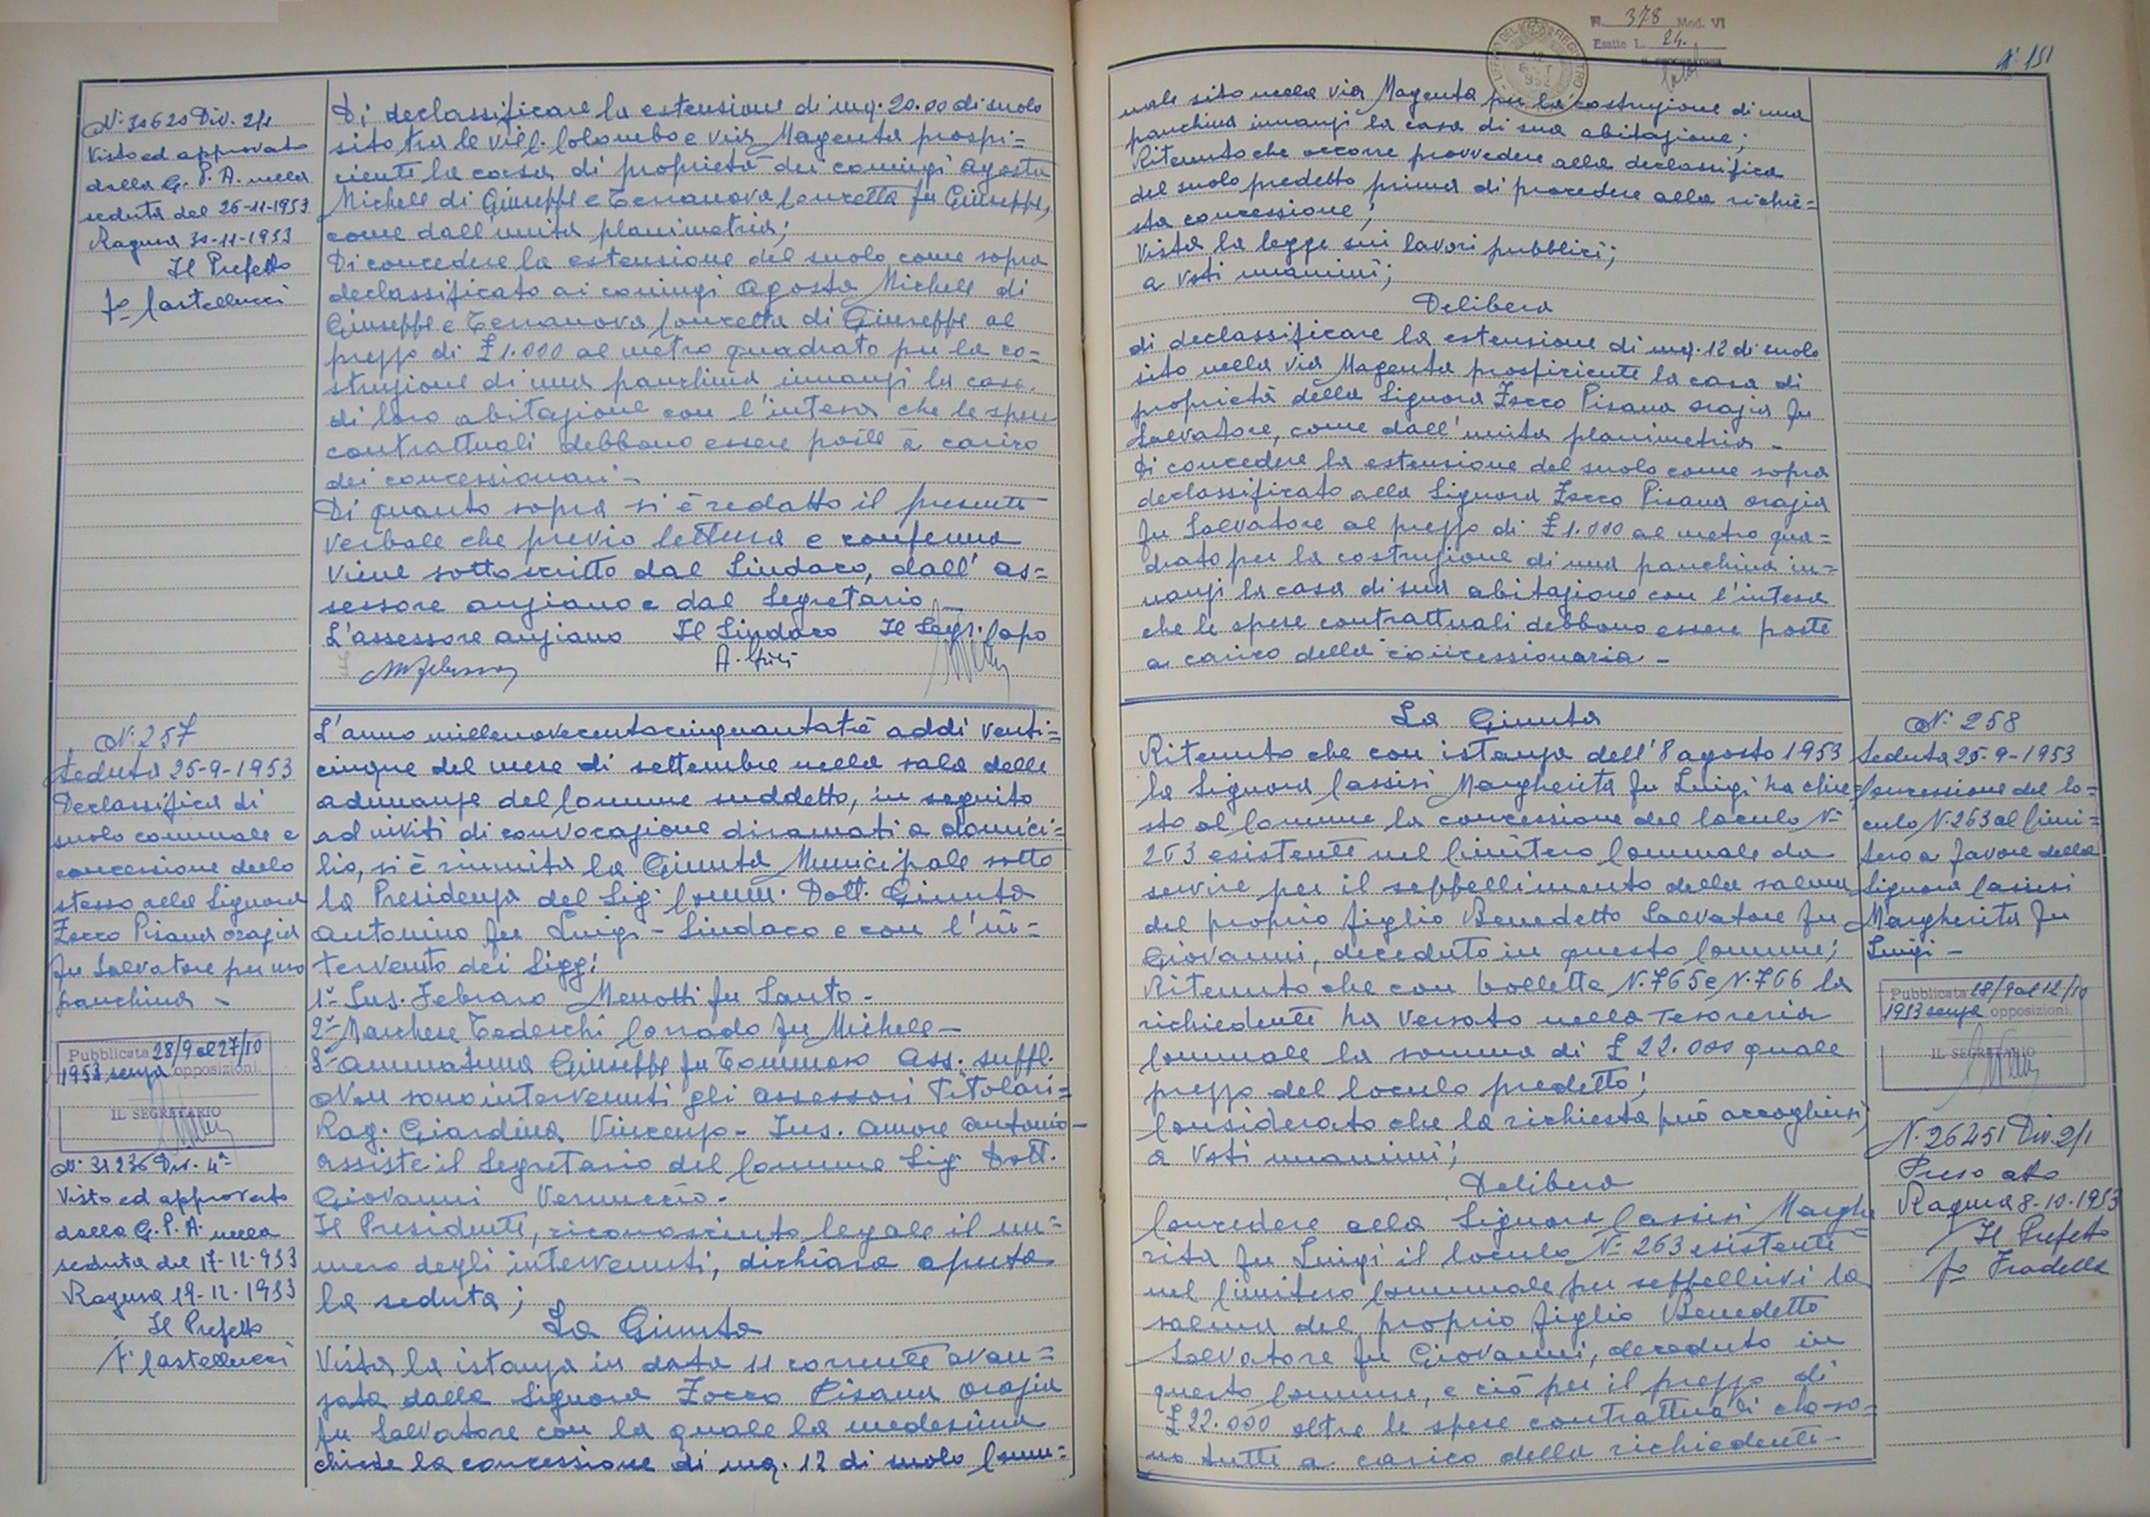 N. 30620 Div. 2/1
Visto ed approvato
dalla G. P. A. nella
seduta del 26-11-1953
Ragusa 30-11-1953
Il Prefetto
fo Castellucci
Di declassificare la estensione di mq. 20.00 di suolo
sito tra le vie C. Colombo e via Magenta prospi=
ciente la casa di proprietà dei coniugi Agosta
Michele di Giuseppe e Terranova Concetta fu Giuseppe,
come dall'unita planimetria;
Di concedere la estensione del suolo come sopra
declassificato ai coniugi Agosta Michele di
Giuseppe e Terranova Concetta di Giuseppe al
prezzo di £ 1.000 al metro quadrato per la co=
struzione di una panchina innanzi la casa
di loro abitazione con l'intesa che le spese
contrattuali debbono essere poste a carico
dei concessionari -
Di quanto sopra si è redatto il presente
verbale che previo lettura e conferma
viene sottoscritto dal Sindaco, dall'as=
sessore anziano e dal Segretario -
L'assessore anziano Il Sindaco Il Segr. Capo
N. 257
Seduta 25-9-1953
Declassifica di
suolo comunale e
concessione dello
stesso alla Signora
Zocco Pisana Orazia
fu Salvatore per uso
panchina -
Pubblicata 28/9 al 27/10
1953 senza opposizioni.
IL SEGRETARIO
N. 31236 Div. 4ª
Visto ed approvato
dalla G. P. A. nella
seduta del 17-12-953
Ragusa 19-12-1953
Il Prefetto
fo Castellucci
L'anno millenovecentocinquantatrè addì venti=
cinque del mese di settembre nella sala delle
adunanze del Comune suddetto, in seguito
ad inviti di convocazione diramati a domici=
lio, si è riunita la Giunta Municipale sotto
la Presidenza del Sig. Comm. Dott. Giunta
Antonino fu Luigi - Sindaco e con l'in=
tervento dei Sigg:
1° Ins. Febraro Menotti fu Santo -
2° Marchese Tedeschi Corrado fu Michele -
3° Ammatuna Giuseppe fu Tommaso Ass. suppl.
Non sono intervenuti gli assessori Titolari=
Rag. Giardina Vincenzo - Ins. Amore Antonio -
Assiste il Segretario del Comune Sig. Dott.
Giovanni Vernuccio -
Il Presidente, riconosciuto legale il nu=
mero degli intervenuti, dichiara aperta
la seduta;
La Giunta
Vista la istanza in data 11 corrente avan=
zata dalla Signora Zocco Pisana Orazia
fu Salvatore con la quale la medesima
chiede la concessione di mq. 12 di suolo Comu=
N. 378 Mod. VI
Esatte L. 24.
N. 151
nale sito nella via Magenta per la costruzione di una
panchina innanzi la casa di sua abitazione;
Ritenuto che occorre provvedere alla declassifica
del suolo predetto prima di procedere alla richie=
sta concessione;
Vista la legge sui lavori pubblici;
a voti unanimi;
Delibera
di declassificare la estensione di mq. 12 di suolo
sito nella via Magenta prospiciente la casa di
proprietà della Signora Zocco Pisana Orazia fu
Salvatore, come dall'unita planimetria -
Di concedere la estensione del suolo come sopra
declassificato alla Signora Zocco Pisana Orazia
fu Salvatore al prezzo di £ 1.000 al metro qua=
drato per la costruzione di una panchina in=
nanzi la casa di sua abitazione con l'intesa
che le spese contrattuali debbono essere poste
a carico della concessionaria -
La Giunta
Ritenuto che con istanza dell'8 agosto 1953
la Signora Cassisi Margherita fu Luigi ha chie=
sto al Comune la concessione del loculo N°
263 esistente nel Cimitero Comunale da
servire per il seppellimento della salma
del proprio figlio Benedetto Salvatore fu
Giovanni, deceduto in questo Comune;
Ritenuto che con bollette N. 765 e N. 766 la
richiedente ha versato nella Tesoreria
Comunale la somma di £ 22.000 quale
prezzo del loculo predetto;
Considerato che la richiesta può accogliersi;
a voti unanimi;
Delibera
Concedere alla Signora Cassisi Marghe
rita fu Luigi il loculo N° 263 esistente
nel Cimitero Comunale per seppellirvi la
salma del proprio figlio Benedetto
Salvatore fu Giovanni, deceduto in
questo Comune, e ciò per il prezzo di
£ 22.000 oltre le spese contrattuali che so=
no tutte a carico della richiedente -
N. 258
Seduta 25-9-1953
Concessione del lo=
culo N. 263 al Cimi=
tero a favore della
Signora Cassisi
Margherita fu
Luigi -
Pubblicata 28/9 al 12/10
1953 senza opposizioni.
IL SEGRETARIO
N. 26451 Div. 2/1
Preso atto
Ragusa 8-10-1953
Il Prefetto
fo Fradella